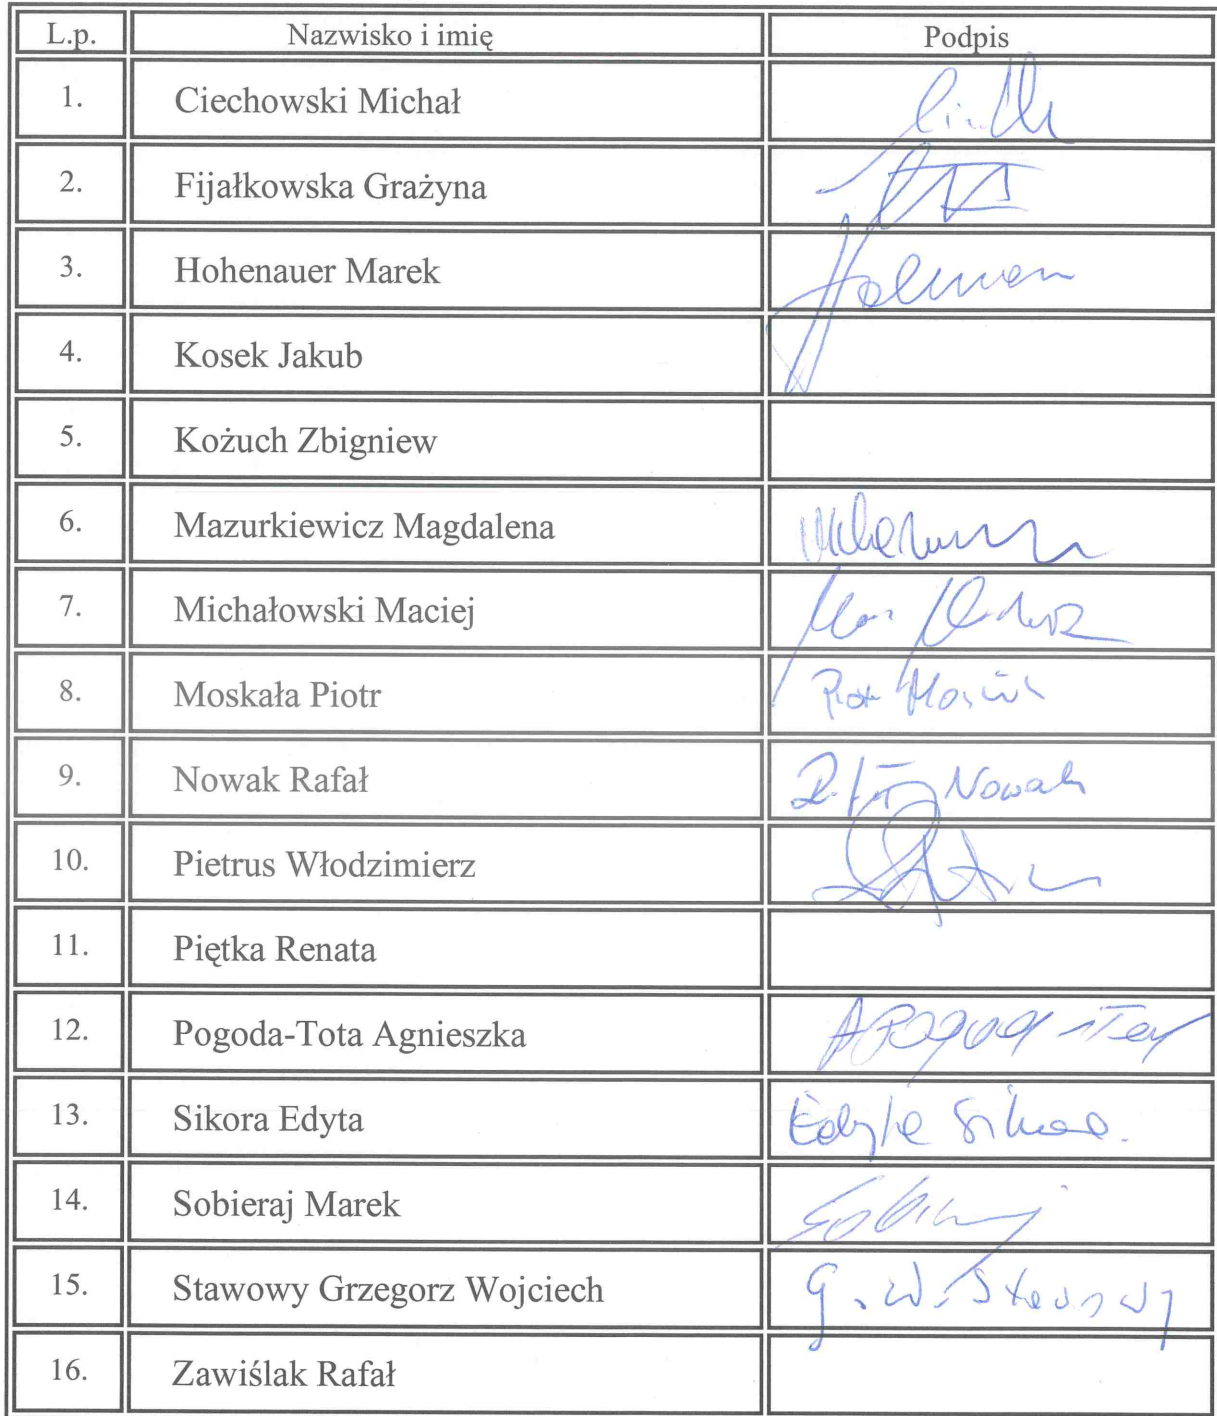 L.p. Nazwisko i imię Podpis
1. Ciechowski Michał
2. Fijałkowska Grażyna
3. Hohenauer Marek
4. Kosek Jakub
5. Kożuch Zbigniew
6. Mazurkiewicz Magdalena
7. Michałowski Maciej
8. Moskała Piotr
9. Nowak Rafał Nowak
10. Pietrus Włodzimierz
11. Piętka Renata
12. Pogoda-Tota Agnieszka
13. Sikora Edyta Edyta Sikora
14. Sobieraj Marek
15. Stawowy Grzegorz Wojciech G. W. Stawowy
16. Zawiślak Rafał